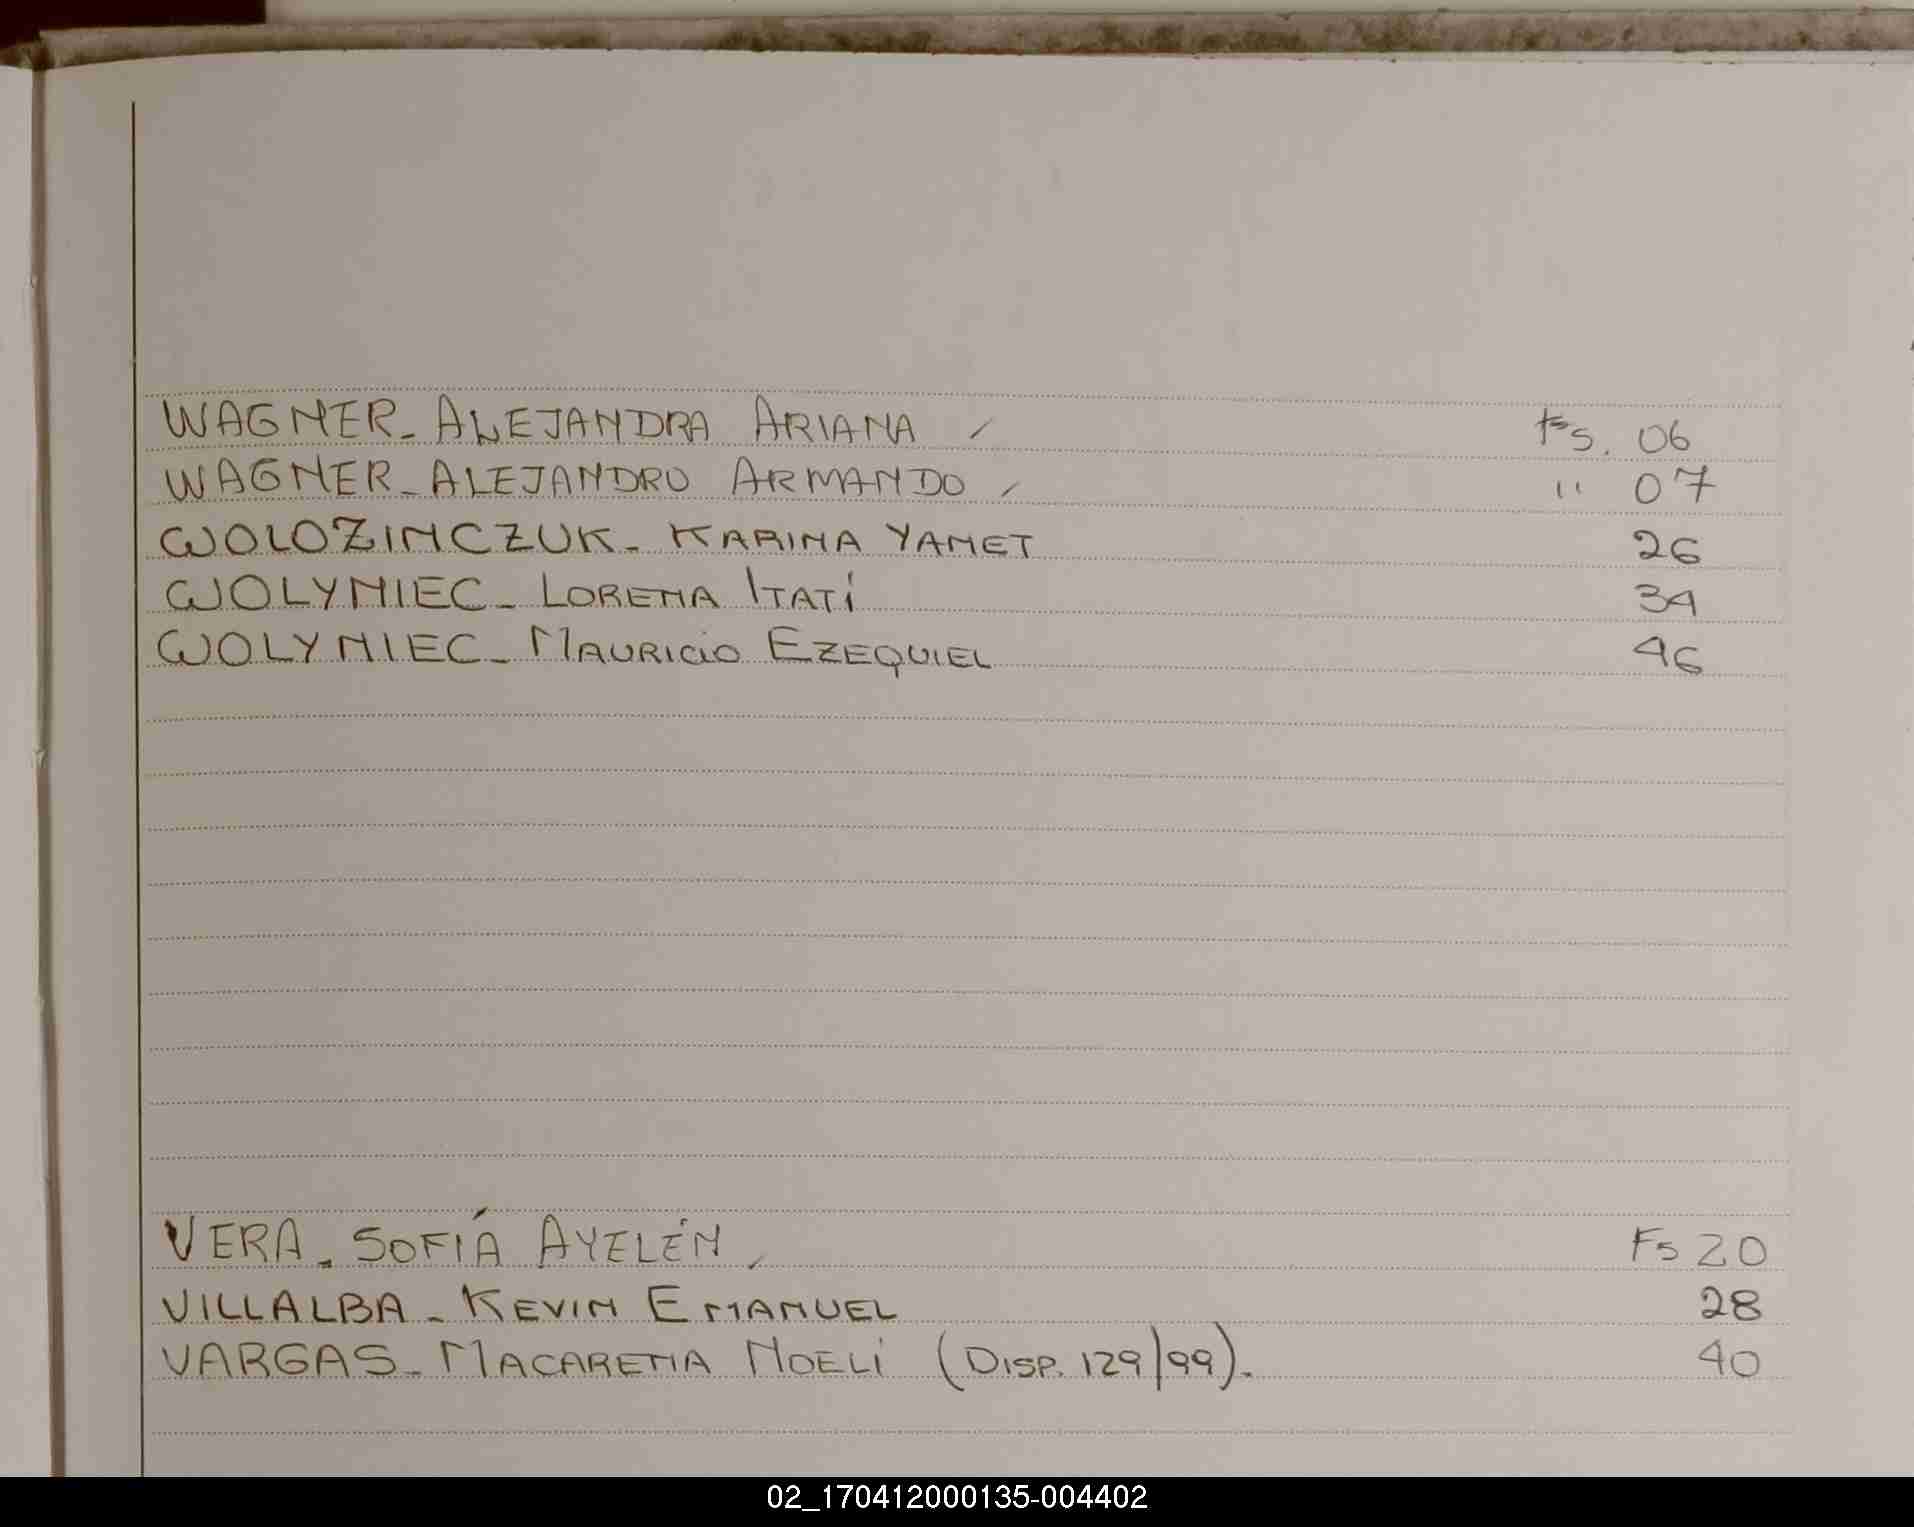 WAGNER_ ALEJANDRA ARIANA / Fs. 06
WAGNER_ ALEJANDRO ARMANDO / " 07
WOLOZINCZUK_ KARINA YANET 26
WOLYNIEC_ LORENA ITATÍ 34
WOLYNIEC_ MAURICIO EZEQUIEL 46
VERA_ SOFÍA AYELÉN / Fs 20
VILLALBA _ KEVIN EMANUEL 28
VARGAS_ MACARENA NOELÍ (DISP. 129/99). 40
02_170412000135-004402